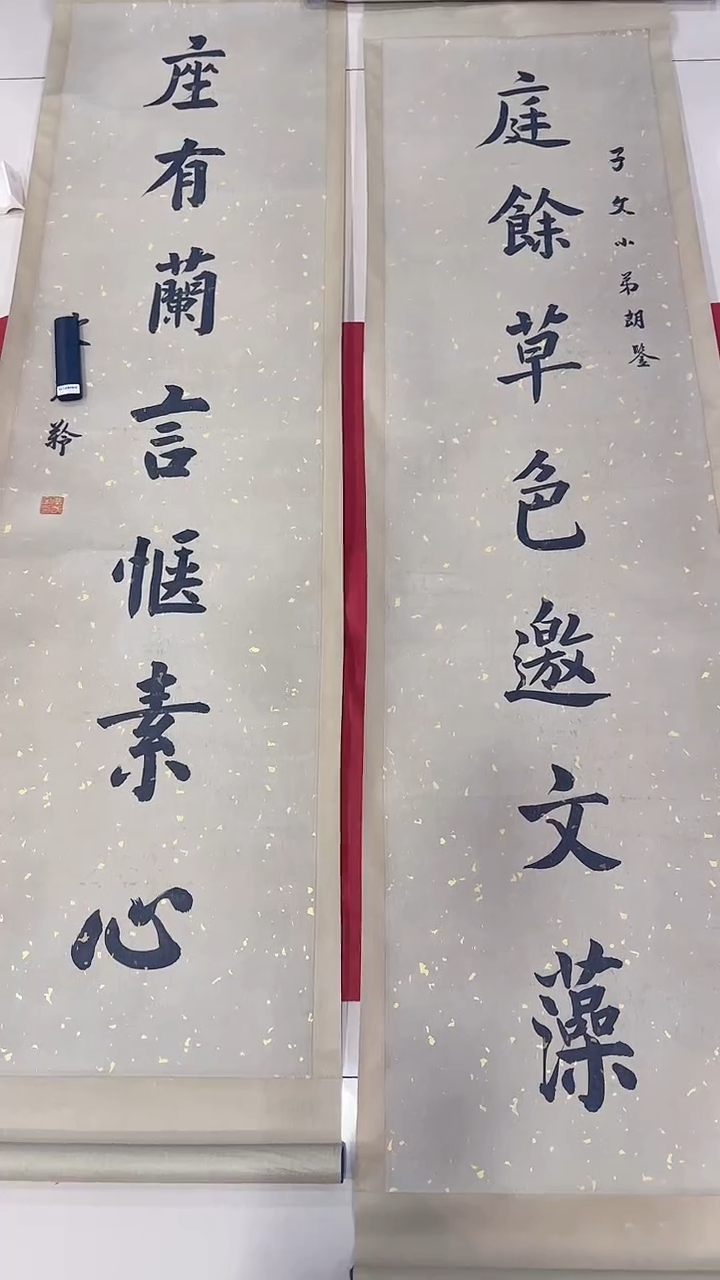 子文小弟朗鑒
庭餘草色邀文藻
座有蘭言愜素心